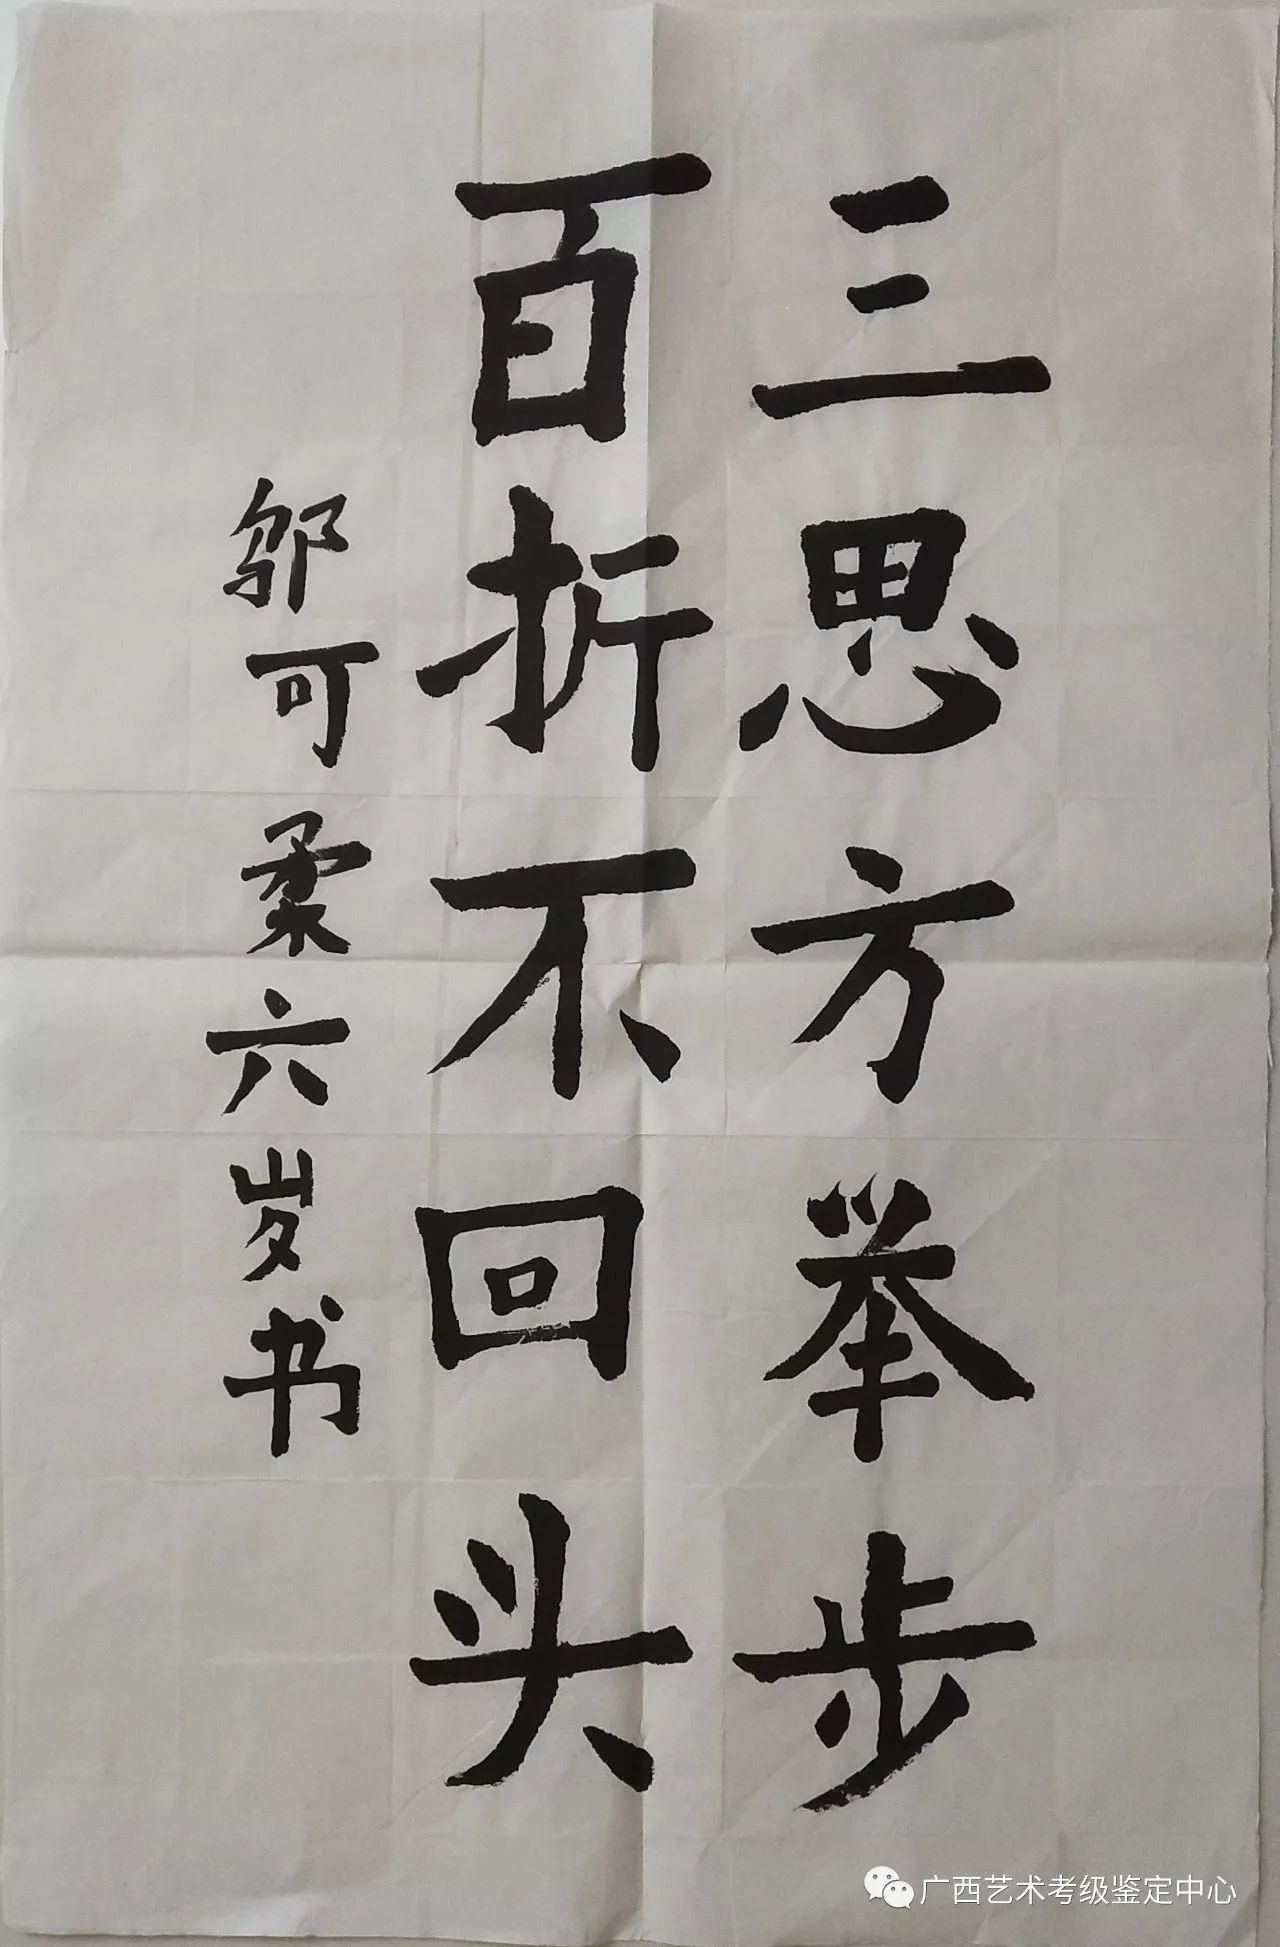 三思方举步
百折不回头
邬可柔六岁书
广西艺术考级鉴定中心